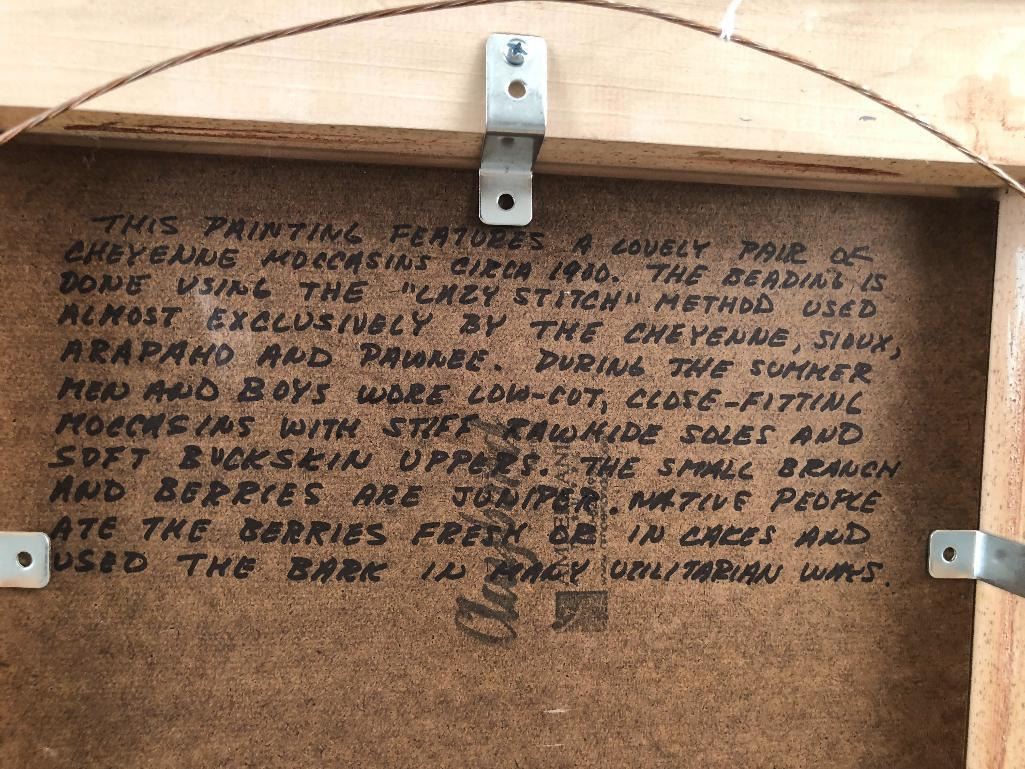 THIS PAINTING FEATURES A LOVELY PAIR OF
CHEYENNE MOCCASINS CIRCA 1900. THE BEADING IS
DONE USING THE "LAZY STITCH" METHOD USED
ALMOST EXCLUSIVELY BY THE CHEYENNE, SIOUX,
ARAPAHO AND PAWNEE. DURING THE SUMMER
MEN AND BOYS WORE LOW-CUT, CLOSE-FITTING
MOCCASINS WITH STIFF RAWHIDE SOLES AND
SOFT BUCKSKIN UPPERS. THE SMALL BRANCH
AND BERRIES ARE JUNIPER. NATIVE PEOPLE
ATE THE BERRIES FRESH OR IN CAKES AND
USED THE BARK IN MANY UTILITARIAN WAYS.